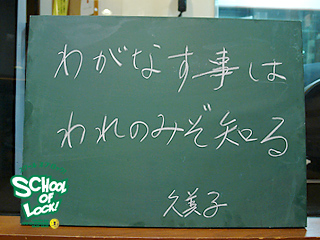 わがなす事は
われのみぞ知る
久美子
SCHOOL
OF
LOCK!